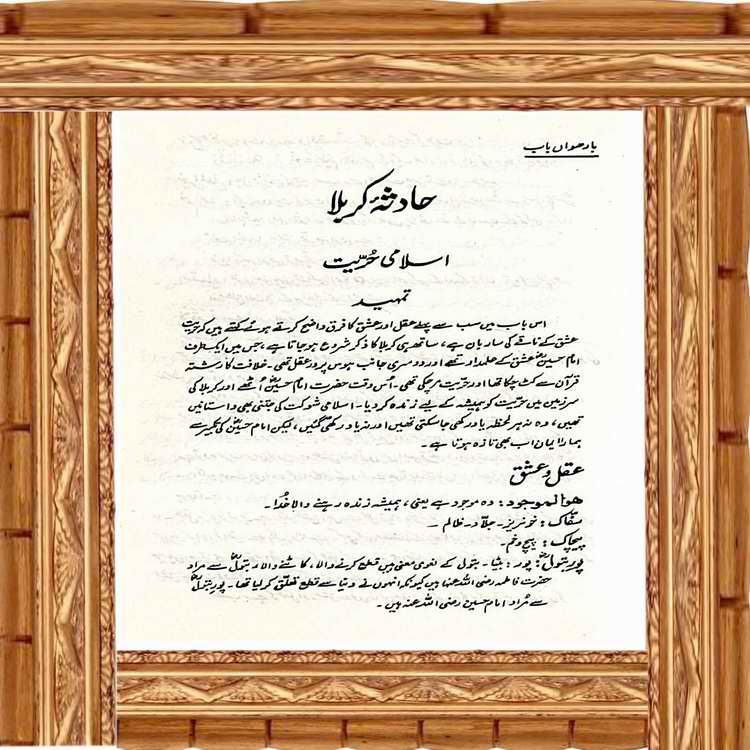 بارھواں باب
حادثۂ کربلا
اسلامی حُرّیت
تمہید
اس باب میں سب سے پہلے عقل اور عشق کا فرق واضح کرتے ہوئے کہتے ہیں کہ حریت
عشق کے ناقے کی ساربان ہے، ساتھ ہی کربلا کا ذکر شروع ہو جاتا ہے، جس میں ایک طرف
امام حسینؓ عشق کے علمدار تھے اور دوسری جانب ہوس پرور عقل تھی۔ خلافت کا رشتہ
قرآن سے کٹ چکا تھا اور حریت مر چکی تھی۔ اُس وقت حضرت امام حسینؓ اُٹھے اور کربلا کی
سرزمین میں حریت کو ہمیشہ کے لیے زندہ کر دیا۔ اسلامی شوکت کی جتنی بھی داستانیں
تھیں، وہ نہ ہر لحظہ یاد رکھی جا سکتی تھیں اور نہ یاد رکھی گئیں، لیکن امام حسینؓ کی تکبیر سے
ہمارا ایمان اب بھی تازہ ہوتا ہے۔
عقل و عشق
ھوالموجود: وہ موجود ہے یعنی، ہمیشہ زندہ رہنے والا خُدا۔
سفّاک: خونریز۔ جلّاد۔ ظالم۔
پیچاک: پیچ و خم۔
پورِ بتولؓ: پور: بیٹا۔ بتول کے لغوی معنی ہیں قطع کرنے والا، کاٹنے والا، بتولؓ سے مراد
حضرت فاطمہ رضی اللہ عنہا ہیں کیونکہ انہوں نے دنیا سے قطع تعلق کر لیا تھا۔ پورِ بتولؓ
سے مُراد امام حسین رضی اللہ عنہ ہیں۔